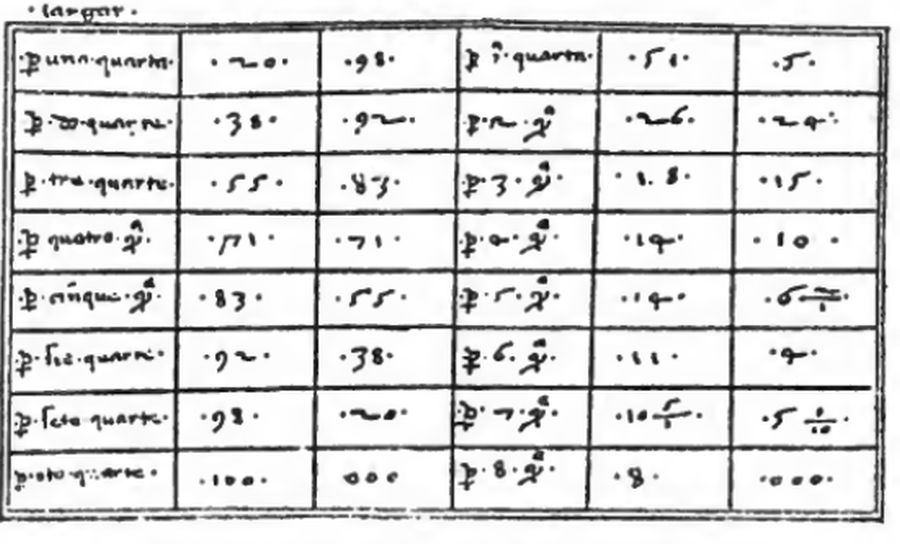 · largar ·
·ꝑ una·quarta· ·20· ·98· ꝑ i·quarta· ·51· ·5·
·ꝑ·do·quarte· ·38· ·92· ·ꝑ·2· ·26· ·24·
·ꝑ·tre·quarte· ·55· ·83· ·ꝑ·3· ·18· ·15·
·ꝑ quatro· ·71· ·71· ·ꝑ·4· ·14· ·10·
·ꝑ·cinque· ·83· ·55· ·ꝑ·5· ·14· ·6 2/1·
·ꝑ·sie·quarte· ·92· ·38· ꝑ·6· ·11· ·4·
·ꝑ·sete·quarte· ·98· ·20· ·ꝑ·7· ·10 5/1· ·5 1/10·
ꝑ·oto·quarte· ·100· 000 ꝑ·8· ·8· ·000·